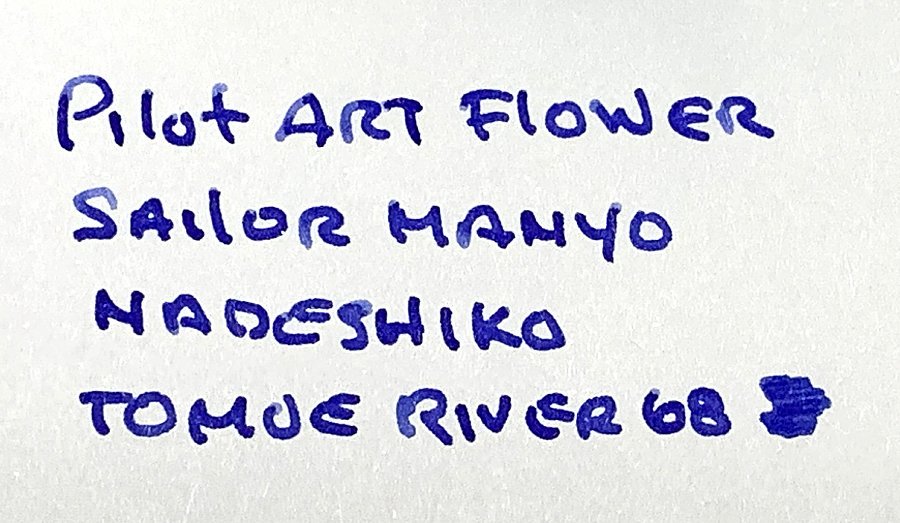 Pilot ART FLOWER
SAILOR MANYO
NADESHIKO
TOMOE RIVER 68